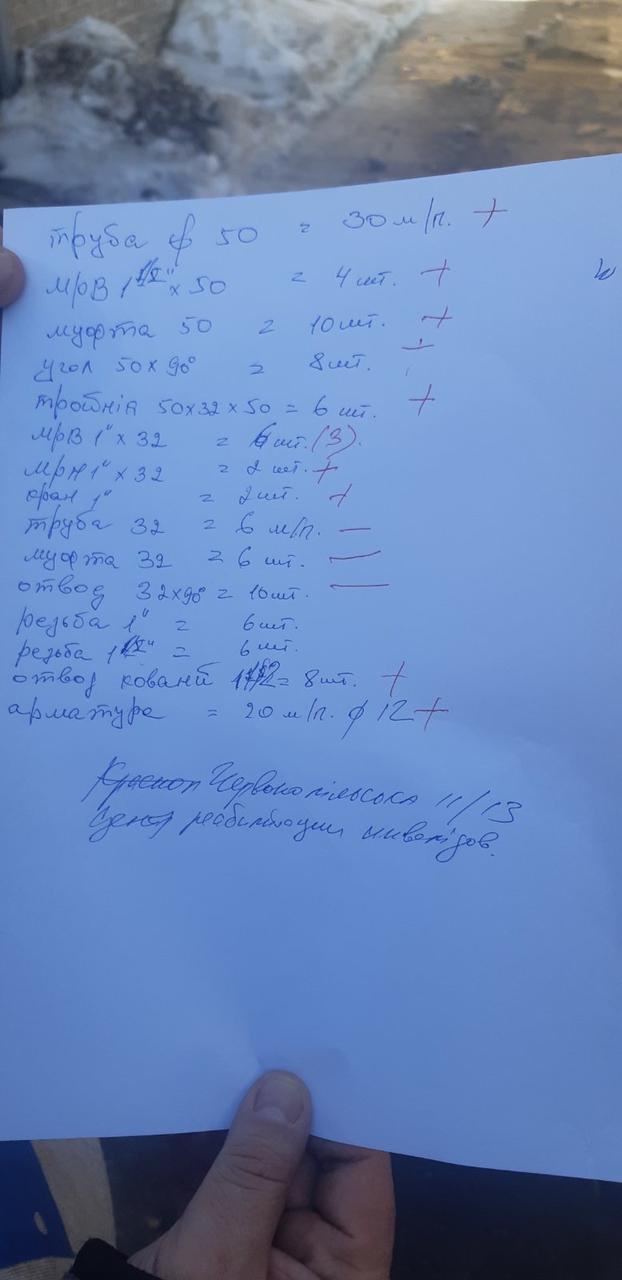 труба ф 50 = 30 м/п. +
мрВ 1 1/2" х 50 = 4 шт. +
муфта 50 = 10 шт. +
угол 50х90° = 8 шт. +
тройнік 50х32х50 = 6 шт. +
мрВ 1" х 32 = 6 шт. (3).
мрН 1" х 32 = 2 шт. +
кран 1" = 2 шт. +
труба 32 = 6 м/п. —
муфта 32 = 6 шт. —
отвод 32х90° = 10 шт. —
резьба 1" = 6 шт.
резьба 1 1/2" = 6 шт.
отвод кований = 8 шт. +
арматура = 20 м/п. ф 12 +
Червонопільська 11/13
Центр реабилітации инвалідов.